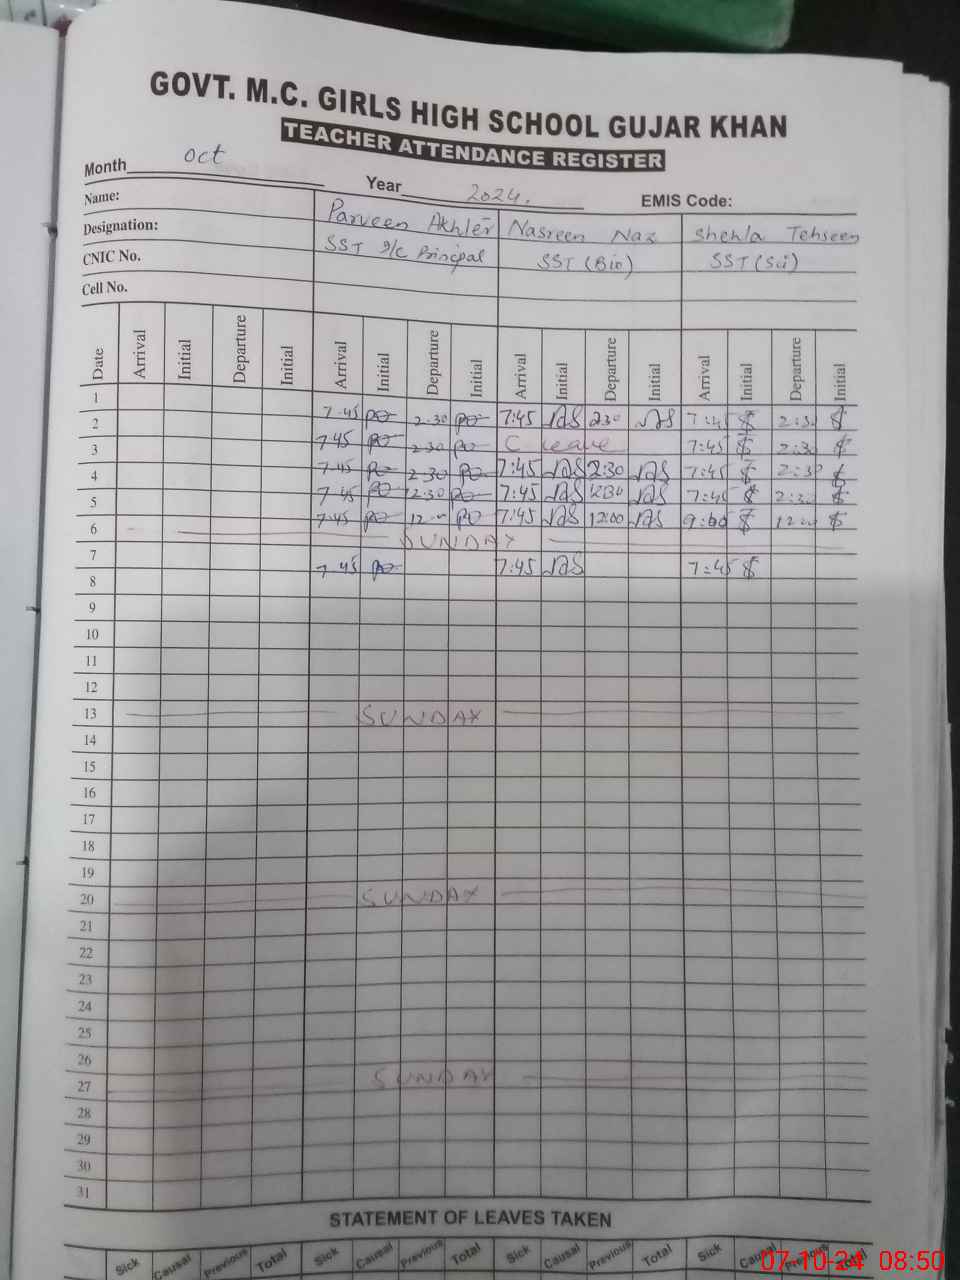 GOVT. M.C. GIRLS HIGH SCHOOL GUJAR KHAN
TEACHER ATTENDANCE REGISTER
Month Oct Year 2024. EMIS Code:
Name: Parveen Akhter Nasreen Naz Shehla Tehseen
Designation: SST I/C Principal SST (Bio) SST (Sci)
CNIC No.
Cell No.
Date Arrival Initial Departure Initial Arrival Initial Departure Initial Arrival Initial Departure Initial Arrival Initial Departure Initial
1 7-45 2-30 7:45 2:30 7:45 2:30
2 7-45 2-30 C leave 7:45 2:30
3 7-45 2-30 7:45 2:30 7:45 2:30
4 7-45 2-30 7:45 7:45 2:30
5 7-45 12-00 7:45 12:00 9:00 12:00
6 SUNDAY
7 7-45 7:45 7:45
8
9
10
11
12
13 SUNDAY
14
15
16
17
18
19
20 SUNDAY
21
22
23
24
25
26
27 SUNDAY
28
29
30
31
STATEMENT OF LEAVES TAKEN
Sick Causal Previous Total Sick Causal Previous Total Sick Causal Previous Total Sick Causal Previous Total
07-10-24 08:50